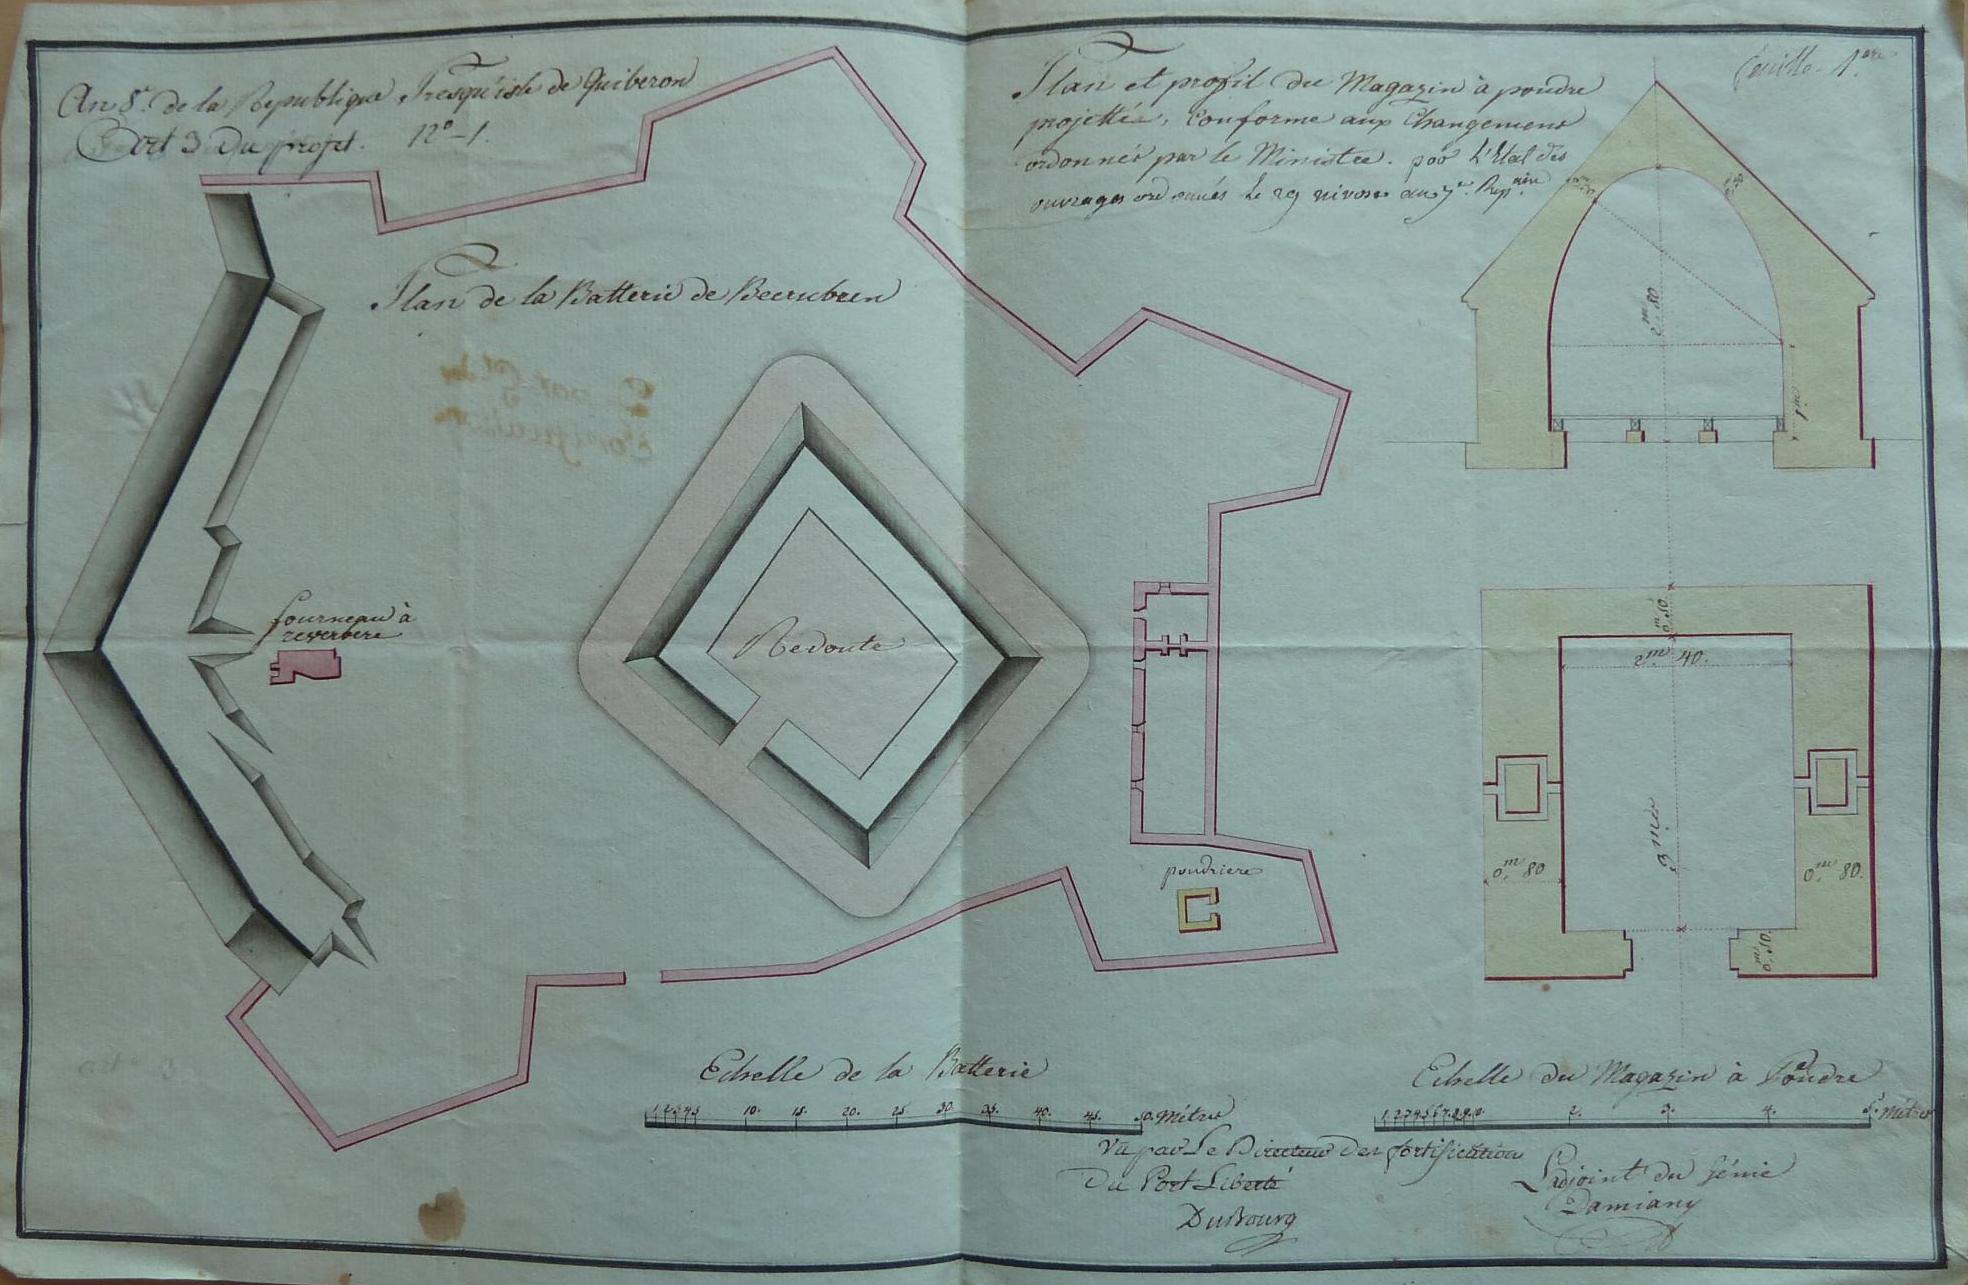 An 8.e de la Republique Presqu'isle de Quiberon
Art 3 Du projet. N.o 1.
Plan et profil du Magazin à poudre
projetté, Conforme aux Changemens
ordonnés par le Ministre. L'Etat des
ouvrages ordonnés Le 29 nivose an 7.e Rep.
feuille 1.ere
Plan de la Batterie de
fourneau à
reverbere
Redoute
poudriere
2.m 80
1.m
0.m 50
2.m 40.
3 m
0.m 80
0.m 80.
0.m 50
art. 3
Echelle de la Batterie
1 2 3 4 5 10. 15. 20. 25 30. 35. 40. 45. 50. Métres
Echelle du Magazin à Poudre
2. 3. 4. 5. Métres
Vu par Le Directeur Des fortification
Du Port Liberté
DuBourg
L'adjoint du Génie
Damiany